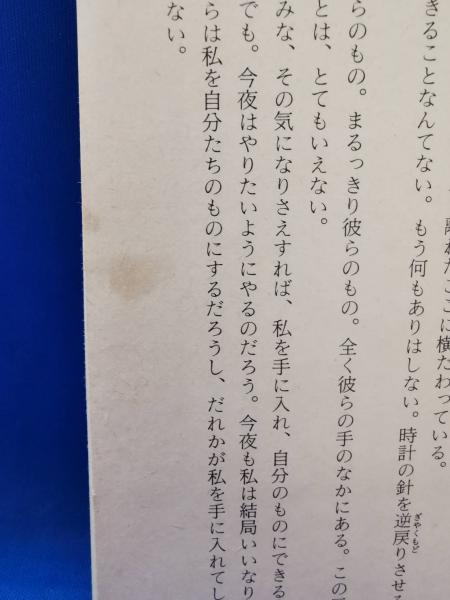 離れたここに横たわっている。
きることなんてない。もう何もありはしない。時計の針を逆戻りさせる
らのもの。まるっきり彼らのもの。全く彼らの手のなかにある。この
とは、とてもいえない。
みな、その気になりさえすれば、私を手に入れ、自分のものにできる
でも。今夜はやりたいようにやるのだろう。今夜も私は結局いいなり
らは私を自分たちのものにするだろうし、だれかが私を手に入れてし
ない。